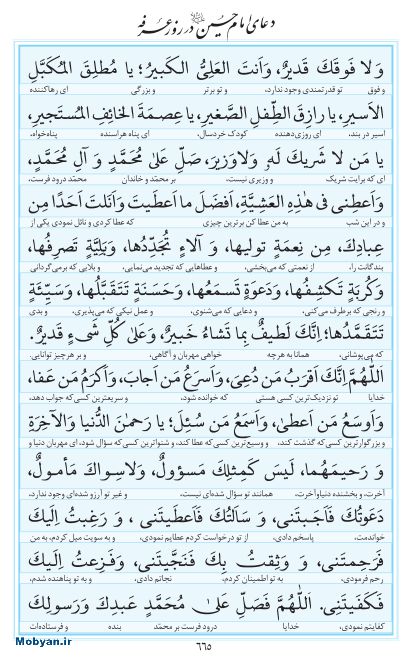 دعای امام حسین در روز عرفه
وَلا فَوقَكَ قَديرٌ، وَاَنتَ العَلِیُّ الكَبيرُ؛ يا مُطلِقَ المُكَبَّلِ
و فوق تو قدرتمندی وجود ندارد، و تو برتر و بزرگی ای رهاکننده
الاَسيرِ، يا رازِقَ الطِّفلِ الصَّغيرِ، يا عِصمَةَ الخائِفِ المُستَجيرِ،
اسیر در بند، ای روزی‌دهنده کودک خردسال، ای پناه هراسنده پناه‌خواه،
يا مَن لا شَريكَ لَهُ وَلاوَزيرَ، صَلِّ عَلىٰ مُحَمَّدٍ وَ آلِ مُحَمَّدٍ،
ای که برایت شریک و وزیری نیست، بر محمّد و خاندان محمّد درود فرست،
وَاَعطِنی فی هٰذِهِ العَشِيَّةِ، اَفضَلَ ما اَعطَيتَ وَاَنَلتَ اَحَدًا مِن
و در این شب به من عطا کن برترین چیزی که عطا کردی و نائل نمودی یکی از
عِبادِكَ، مِن نِعمَةٍ توليها، وَ آلاءٍ تُجَدِّدُها، وَبَلِيَّةٍ تَصرِفُها،
بندگانت را، از نعمتی که می‌بخشی، و عطاهایی که تجدید می‌نمایی، و بلایی که برمی‌گردانی
وَكُربَةٍ تَكشِفُها، وَدَعوَةٍ تَسمَعُها، وَحَسَنَةٍ تَتَقَبَّلُها، وَسَيِّئَةٍ
و رنجی که برطرف می‌کنی، و دعایی که می‌شنوی، و عمل نیکی که می‌پذیری، و بدی
تَتَغَمَّدُها؛ اِنَّكَ لَطيفٌ بِما تَشاءُ خَبيرٌ، وَعَلىٰ كُلِّ شَیءٍ قَديرٌ.
که می‌پوشانی، همانا به هرچه خواهی مهربان و آگاهی، و بر هر چیز توانایی.
اَللّٰهُمَّ اِنَّكَ اَقرَبُ مَن دُعِیَ، وَاَسرَعُ مَن اَجابَ، وَاَكرَمُ مَن عَفا،
خدایا تو نزدیک‌ترین کسی هستی که خوانده شود، و سریعترین کسی که جواب دهد،
وَاَوسَعُ مَن اَعطىٰ، وَاَسمَعُ مَن سُئِلَ؛ يا رَحمانَ الدُّنيا وَالآخِرَةِ
و بزرگوارترین کسی که گذشت کند، و وسیع‌ترین کسی که عطا کند، و شنواترین کسی که سؤال شود، ای مهربان دنیا و
وَ رَحيمَهُما، لَيسَ كَمِثلِكَ مَسؤولٌ، وَلاسِواكَ مَأمولٌ،
آخرت، و بخشنده دنیا و آخرت، همانند تو سؤال شده‌ای نیست، و غیر تو آرزو شده‌ای وجود ندارد،
دَعَوتُكَ فَاَجَبتَنی، وَ سَاَلتُكَ فَاَعطَيتَنی، وَ رَغِبتُ اِلَيكَ
خواندمت، پاسخم دادی، از تو درخواست کردم عطایم نمودی، و به سویت میل کردم، به من
فَرَحِمتَنی، وَ وَثِقتُ بِكَ فَنَجَّيتَنی، وَفَزِعتُ اِلَيكَ
رحم فرمودی، به تو اطمینان کردم، نجاتم دادی، و به تو پناهنده شدم،
فَكَفَيتَنی. اَللّٰهُمَّ فَصَلِّ عَلىٰ مُحَمَّدٍ عَبدِكَ وَرَسولِكَ
کفایتم نمودی، خدایا درود فرست بر محمّد بنده و فرستاده‌ات
۶۶۵
Mobyan.ir